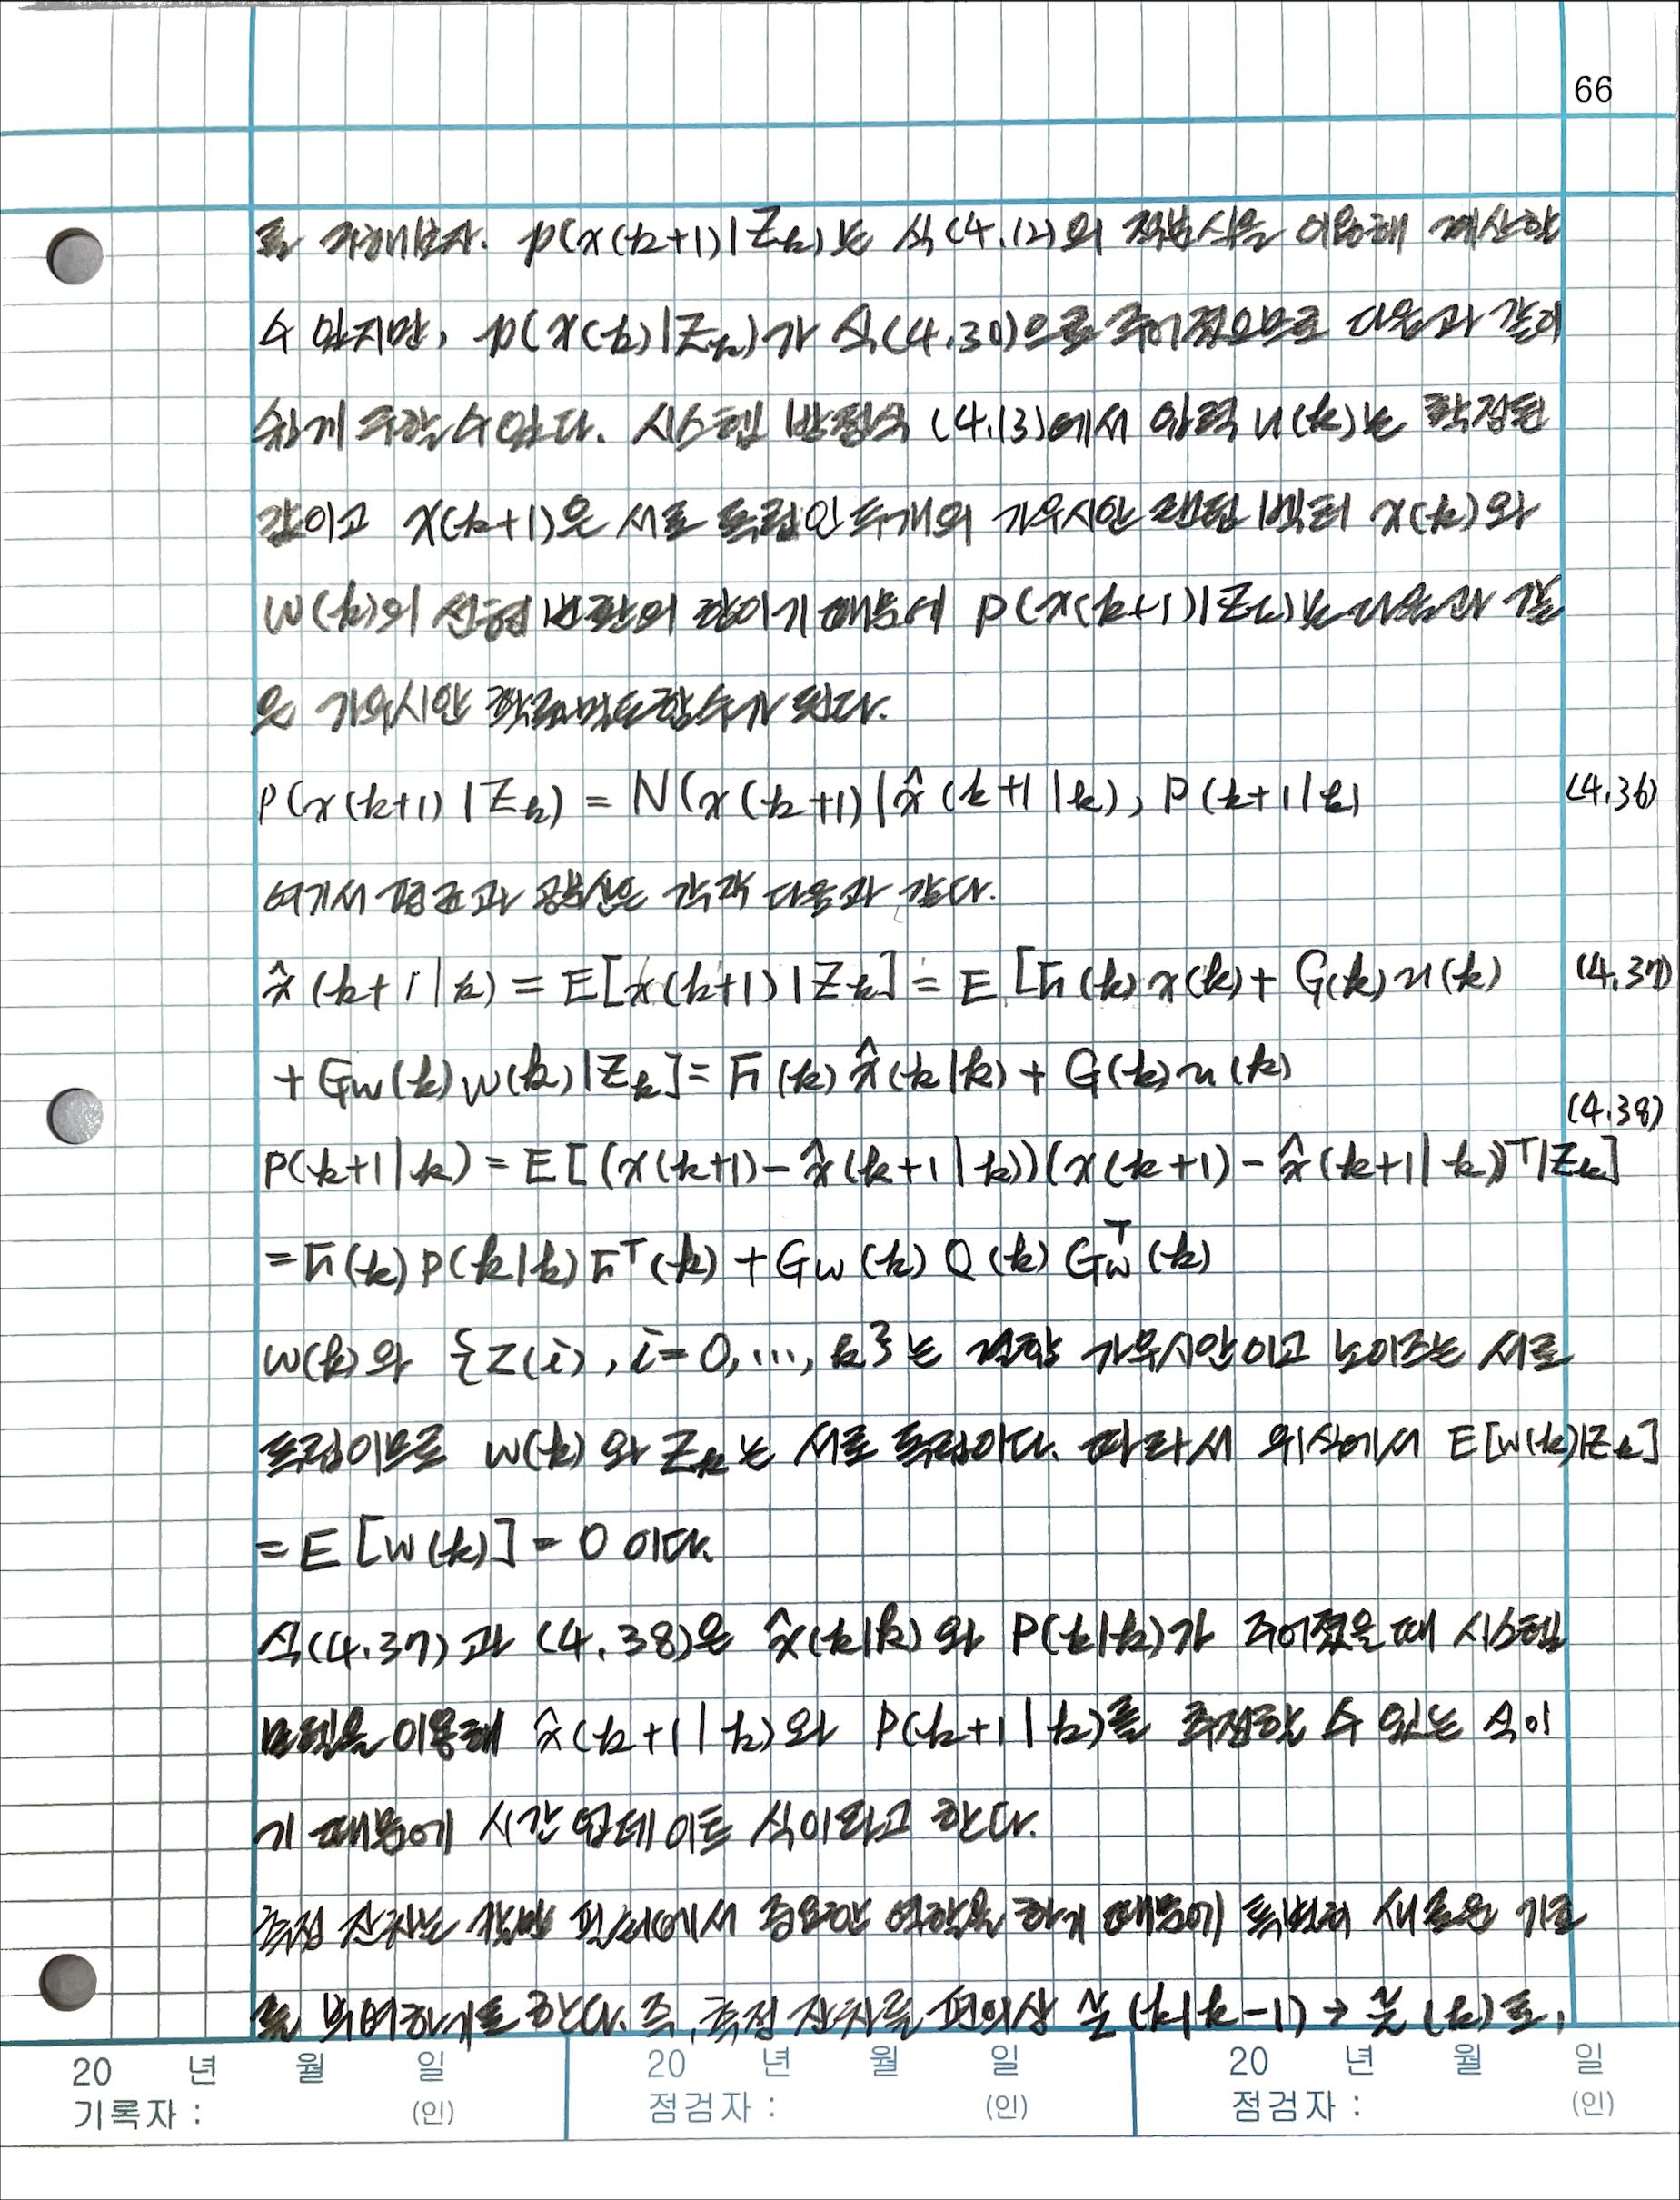 66
를 구해보자. p(x(k+1)|Z_k)는 식(4.12)의 적분식을 이용해 계산할
수 있지만, p(x(k)|Z_k)가 식(4.30)으로 주어졌으므로 다음과 같이
쉽게 구할 수 있다. 시스템 방정식 (4.13)에서 입력 u(k)는 확정된
값이고 x(k+1)은 서로 독립인 두개의 가우시안 랜덤 벡터 x(k)와
w(k)의 선형 변환의 합이기 때문에 p(x(k+1)|Z_k)는 다음과 같
은 가우시안 확률밀도함수가 된다.
p(x(k+1)|Z_k) = N(x(k+1)|x̂(k+1|k), P(k+1|k) (4.36)
여기서 평균과 공분산은 각각 다음과 같다.
x̂(k+1|k) = E[x(k+1)|Z_k] = E[F(k)x(k) + G(k)u(k) (4.37)
+ G_w(k)w(k)|Z_k] = F(k)x̂(k|k) + G(k)u(k)
(4.38)
P(k+1|k) = E[(x(k+1) - x̂(k+1|k))(x(k+1) - x̂(k+1|k))ᵀ|Z_k]
= F(k)P(k|k)Fᵀ(k) + G_w(k)Q(k)G_wᵀ(k)
w(k)와 {z(i), i=0, ..., k}는 결합 가우시안이고 노이즈는 서로
독립이므로 w(k)와 Z_k는 서로 독립이다. 따라서 위식에서 E[w(k)|Z_k]
= E[w(k)] = 0 이다.
식(4.37)과 (4.38)은 x̂(k|k)와 P(k|k)가 주어졌을 때 시스템
모델을 이용해 x̂(k+1|k)와 P(k+1|k)를 추정할 수 있는 식이
기 때문에 시간 업데이트 식이라고 한다.
측정 잔차는 칼만 필터에서 중요한 역할을 하기 때문에 특별히 새로운 기호
를 부여하기로 한다. 즉, 측정 잔차를 편의상 z̃(k|k-1) → z̃(k)로,
20 년 월 일 20 년 월 일 20 년 월 일
기록자 : (인) 점검자 : (인) 점검자 : (인)